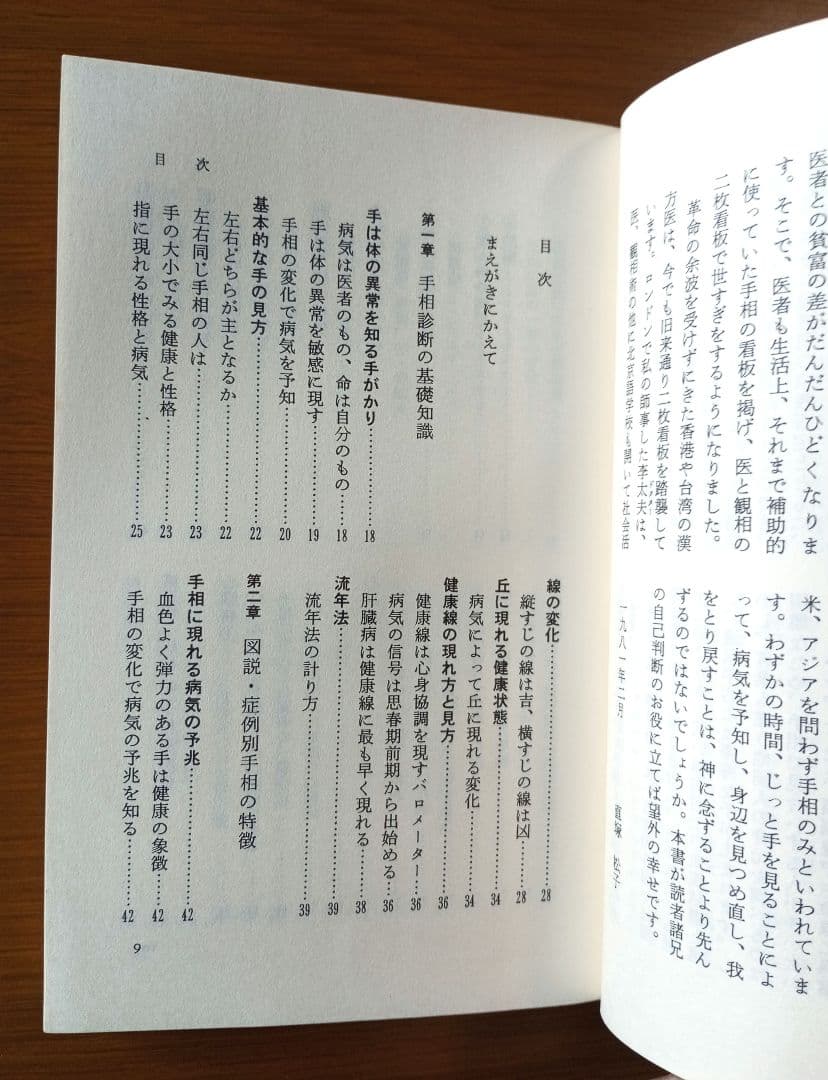 医者との貧富の差がだんだんひどくなりま
す。そこで、医者も生活上、それまで補助的
に使っていた手相の看板を掲げ、医と観相の
二枚看板で世すぎをするようになりました。
革命の余波を受けずにきた香港や台湾の漢
方医は、今でも旧来通り二枚看板を踏襲して
います。ロンドンで私の師事した李太夫は、
医、観相術の他に北京語学校も開いて社会活
米、アジアを問わず手相のみといわれていま
す。わずかの時間、じっと手を見ることによ
って、病気を予知し、身辺を見つめ直し、我
をとり戻すことは、神に念ずることより先ん
ずるのではないでしょうか。本書が読者諸兄
の自己判断のお役に立てば望外の幸せです。
一九八一年二月
直塚 松子
目次
まえがきにかえて
第一章 手相診断の基礎知識
手は体の異常を知る手がかり……18
病気は医者のもの、命は自分のもの……18
手は体の異常を敏感に現す……19
手相の変化で病気を予知……20
基本的な手の見方……22
左右どちらが主となるか……22
左右同じ手相の人は……23
手の大小でみる健康と性格……23
指に現れる性格と病気……25
線の変化……28
縦すじの線は吉、横すじの線は凶……28
丘に現れる健康状態……34
病気によって丘に現れる変化……34
健康線の現れ方と見方……36
健康線は心身協調を現すバロメーター……36
病気の信号は思春期前期から出始める……36
肝臓病は健康線に最も早く現れる……38
流年法……39
流年法の計り方……39
第二章 図説・症例別手相の特徴
手相に現れる病気の予兆……42
血色よく弾力のある手は健康の象徴……42
手相の変化で病気の予兆を知る……42
目次
9